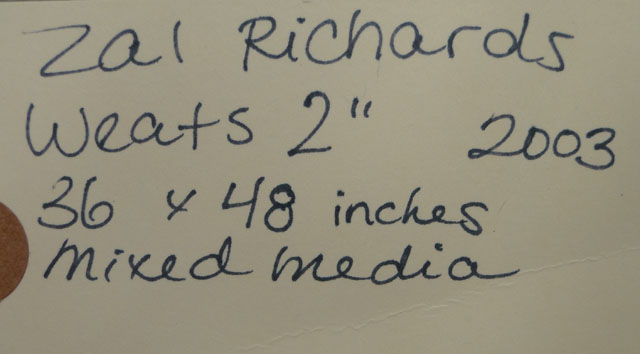 Zal Richards
Weats 2" 2003
36 x 48 inches
Mixed media